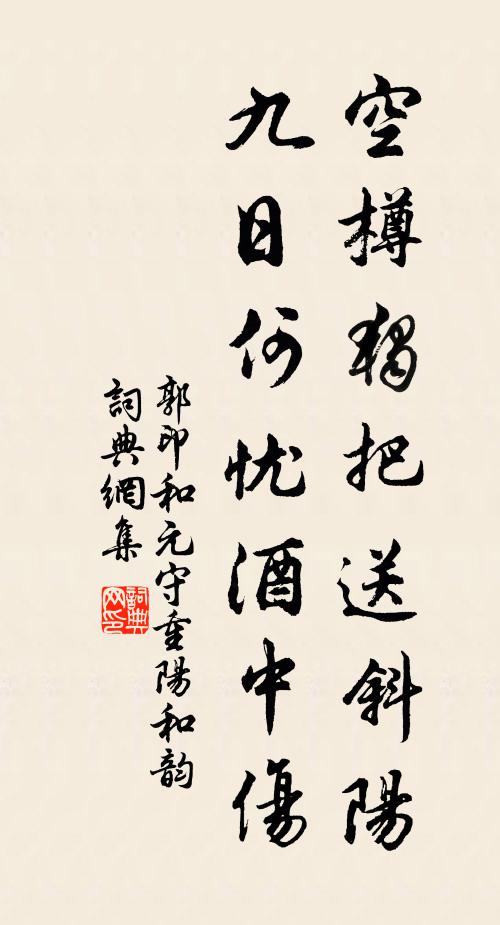 空樽獨把送斜陽
九日何忧酒中傷
郭印和元守重陽和韵
詞典網集
詞典网印